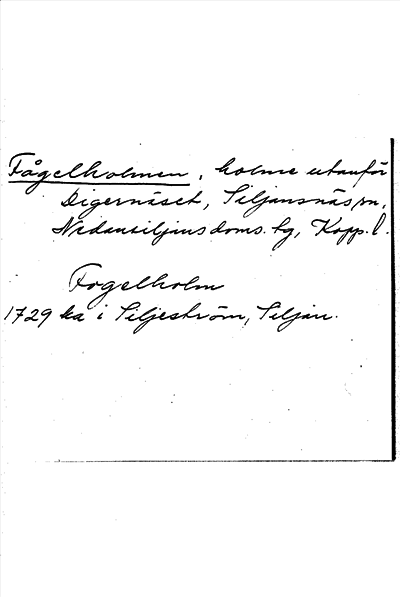 Fågelholmen, holme utanför
Digernäset, Siljansnäs sn,
Nedansiljans doms. tg, Kopp. l.
Fogelholm
1729 ka i Siljeström, Siljan.